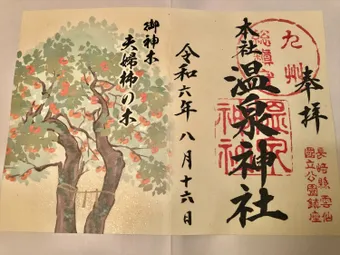 奉拝
九州
総鎮守
本社
温泉神社
温泉神社
長崎縣雲仙
國立公園鎮座
令和六年八月十六日
御神木
夫婦柿の木